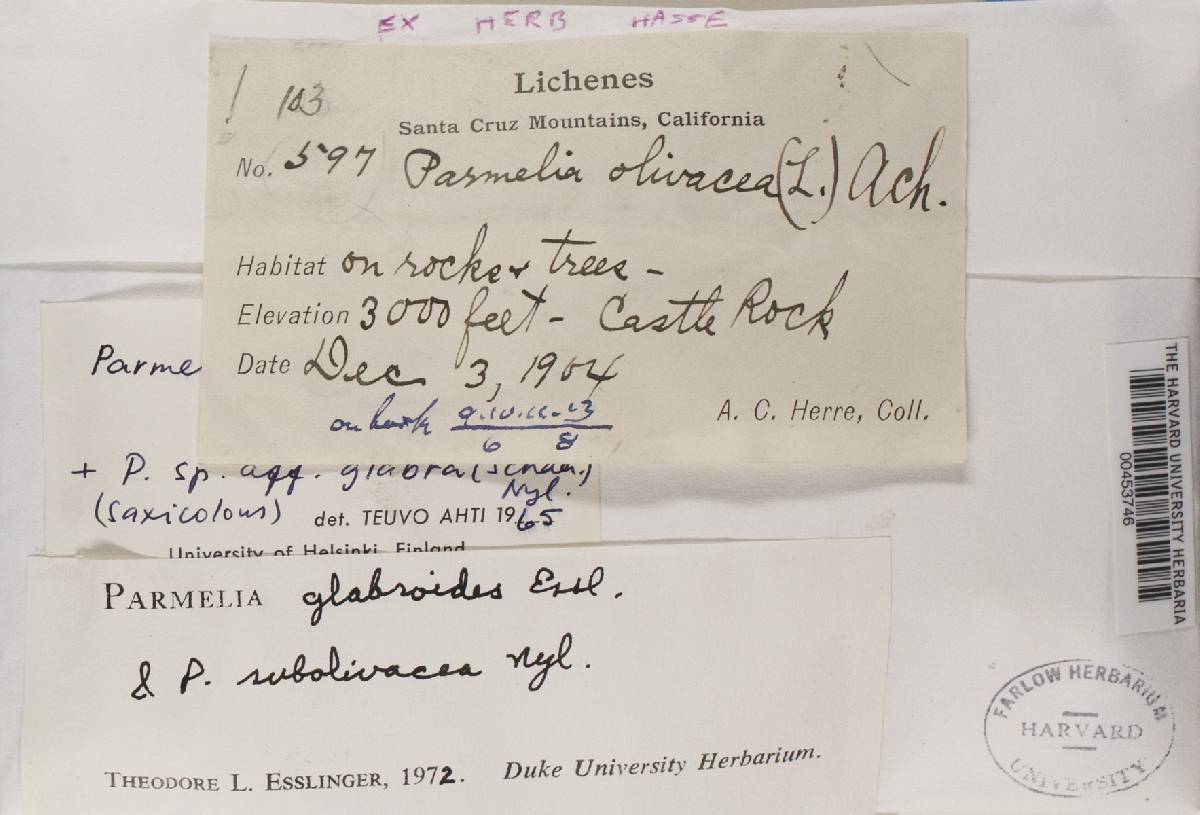 EX HERB HASSE
! 103
Lichenes
Santa Cruz Mountains, California
No. 597 Parmelia olivacea (L.) Ach.
Habitat on rocks & trees -
Elevation 3000 feet - Castle Rock
Date Dec 3, 1904
on bark 9.10.11.13
6 8
A. C. Herre, Coll.
Parme
+ P. sp. aff. glabra (Schaer.)
Nyl.
(saxicolous) det. TEUVO AHTI 1965
University of Helsinki, Finland
PARMELIA glabroides Essl.
& P. subolivacea Nyl.
THEODORE L. ESSLINGER, 1972. Duke University Herbarium.
THE HARVARD UNIVERSITY HERBARIA
00453746
FARLOW HERBARIUM
HARVARD
UNIVERSITY